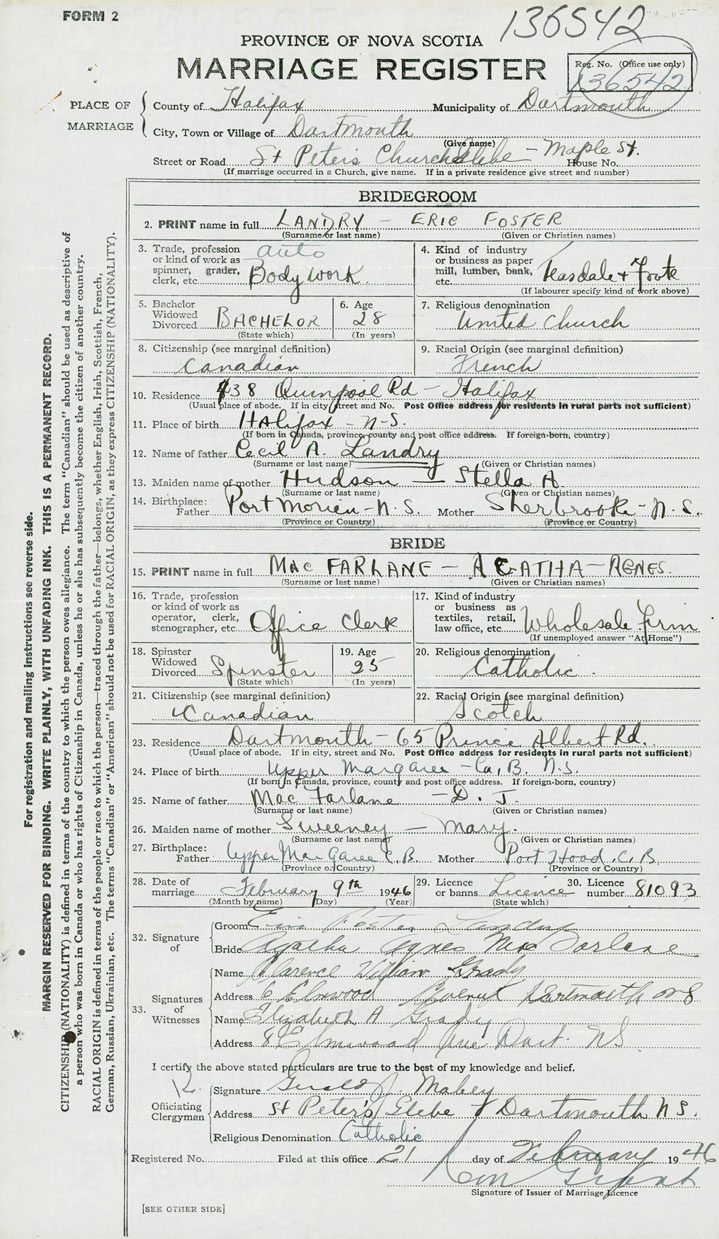 FORM 2
136542
PROVINCE OF NOVA SCOTIA
MARRIAGE REGISTER
Reg. No. (Office use only)
136542
PLACE OF MARRIAGE
County of Halifax Municipality of Dartmouth
City, Town or Village of Dartmouth
(Give name)
Street or Road St Peter's Church Glebe - Maple St. House No.
(If marriage occurred in a Church, give name. If in a private residence give street and number)
BRIDEGROOM
2. PRINT name in full LANDRY - ERIC FOSTER
(Surname or last name) (Given or Christian names)
3. Trade, profession or kind of work as spinner, grader, clerk, etc. auto Body Work.
4. Kind of industry or business as paper mill, lumber, bank, etc. Teasdale + Foote
(If labourer specify kind of work above)
5. Bachelor Widowed Divorced BACHELOR (State which)
6. Age 28 (In years)
7. Religious denomination United Church
8. Citizenship (see marginal definition) Canadian
9. Racial Origin (see marginal definition) French
10. Residence 438 Quinpool Rd - Halifax
(Usual place of abode. If in city, street and No. Post Office address for residents in rural parts not sufficient)
11. Place of birth Halifax - N.S.
(If born in Canada, province, county and post office address. If foreign-born, country)
12. Name of father Cecil A. Landry
(Surname or last name) (Given or Christian names)
13. Maiden name of mother Hudson - Stella A.
(Surname or last name) (Given or Christian names)
14. Birthplace: Father Port Morien - N.S. Mother Sherbrooke - N.S.
(Province or Country) (Province or Country)
BRIDE
15. PRINT name in full MAC FARLANE - AGATHA - AGNES.
(Surname or last name) (Given or Christian names)
16. Trade, profession or kind of work as operator, clerk, stenographer, etc. Office Clerk
17. Kind of industry or business as textiles, retail, law office, etc. Wholesale Firm
(If unemployed answer "At Home")
18. Spinster Widowed Divorced Spinster (State which)
19. Age 25 (In years)
20. Religious denomination Catholic.
21. Citizenship (see marginal definition) Canadian
22. Racial Origin (see marginal definition) Scotch
23. Residence Dartmouth - 65 Prince Albert Rd.
(Usual place of abode. If in city, street and No. Post Office address for residents in rural parts not sufficient)
24. Place of birth Upper Margaree - Ca, B. N.S.
(If born in Canada, province, county and post office address. If foreign-born, country)
25. Name of father Mac Farlane - D. J.
(Surname or last name) (Given or Christian names)
26. Maiden name of mother Sweeney - Mary.
(Surname or last name) (Given or Christian names)
27. Birthplace: Father Upper Margaree C.B. Mother Port Hood. C.B.
(Province or Country) (Province or Country)
28. Date of marriage February 9th 1946
(Month by name) (Day) (Year)
29. Licence or banns Licence (State which)
30. Licence number 81093
32. Signature of
Groom Eric Foster Landry
Bride Agatha Agnes MacFarlane
33. Signatures of Witnesses
Name Clarence William Grady
Address 8 Elmwood Avenue Dartmouth N S
Name Elizabeth A Grady
Address 8 Elmwood Ave Dart. NS
I certify the above stated particulars are true to the best of my knowledge and belief.
12
Officiating Clergyman
Signature Gerald J. Mabey
Address St Peter's Glebe - Dartmouth N S.
Religious Denomination Catholic
Registered No. Filed at this office 21 day of February 1946
Grant
Signature of Issuer of Marriage Licence
[SEE OTHER SIDE]
For registration and mailing instructions see reverse side.
MARGIN RESERVED FOR BINDING. WRITE PLAINLY, WITH UNFADING INK. THIS IS A PERMANENT RECORD.
CITIZENSHIP (NATIONALITY) is defined in terms of the country to which the person owes allegiance. The term "Canadian" should be used as descriptive of
a person who was born in Canada or who has rights of Citizenship in Canada, unless he or she has subsequently become the citizen of another country.
RACIAL ORIGIN is defined in terms of the people or race to which the person—traced through the father—belongs, whether English, Irish, Scottish, French,
German, Russian, Ukrainian, etc. The terms "Canadian" or "American" should not be used for RACIAL ORIGIN, as they express CITIZENSHIP (NATIONALITY).